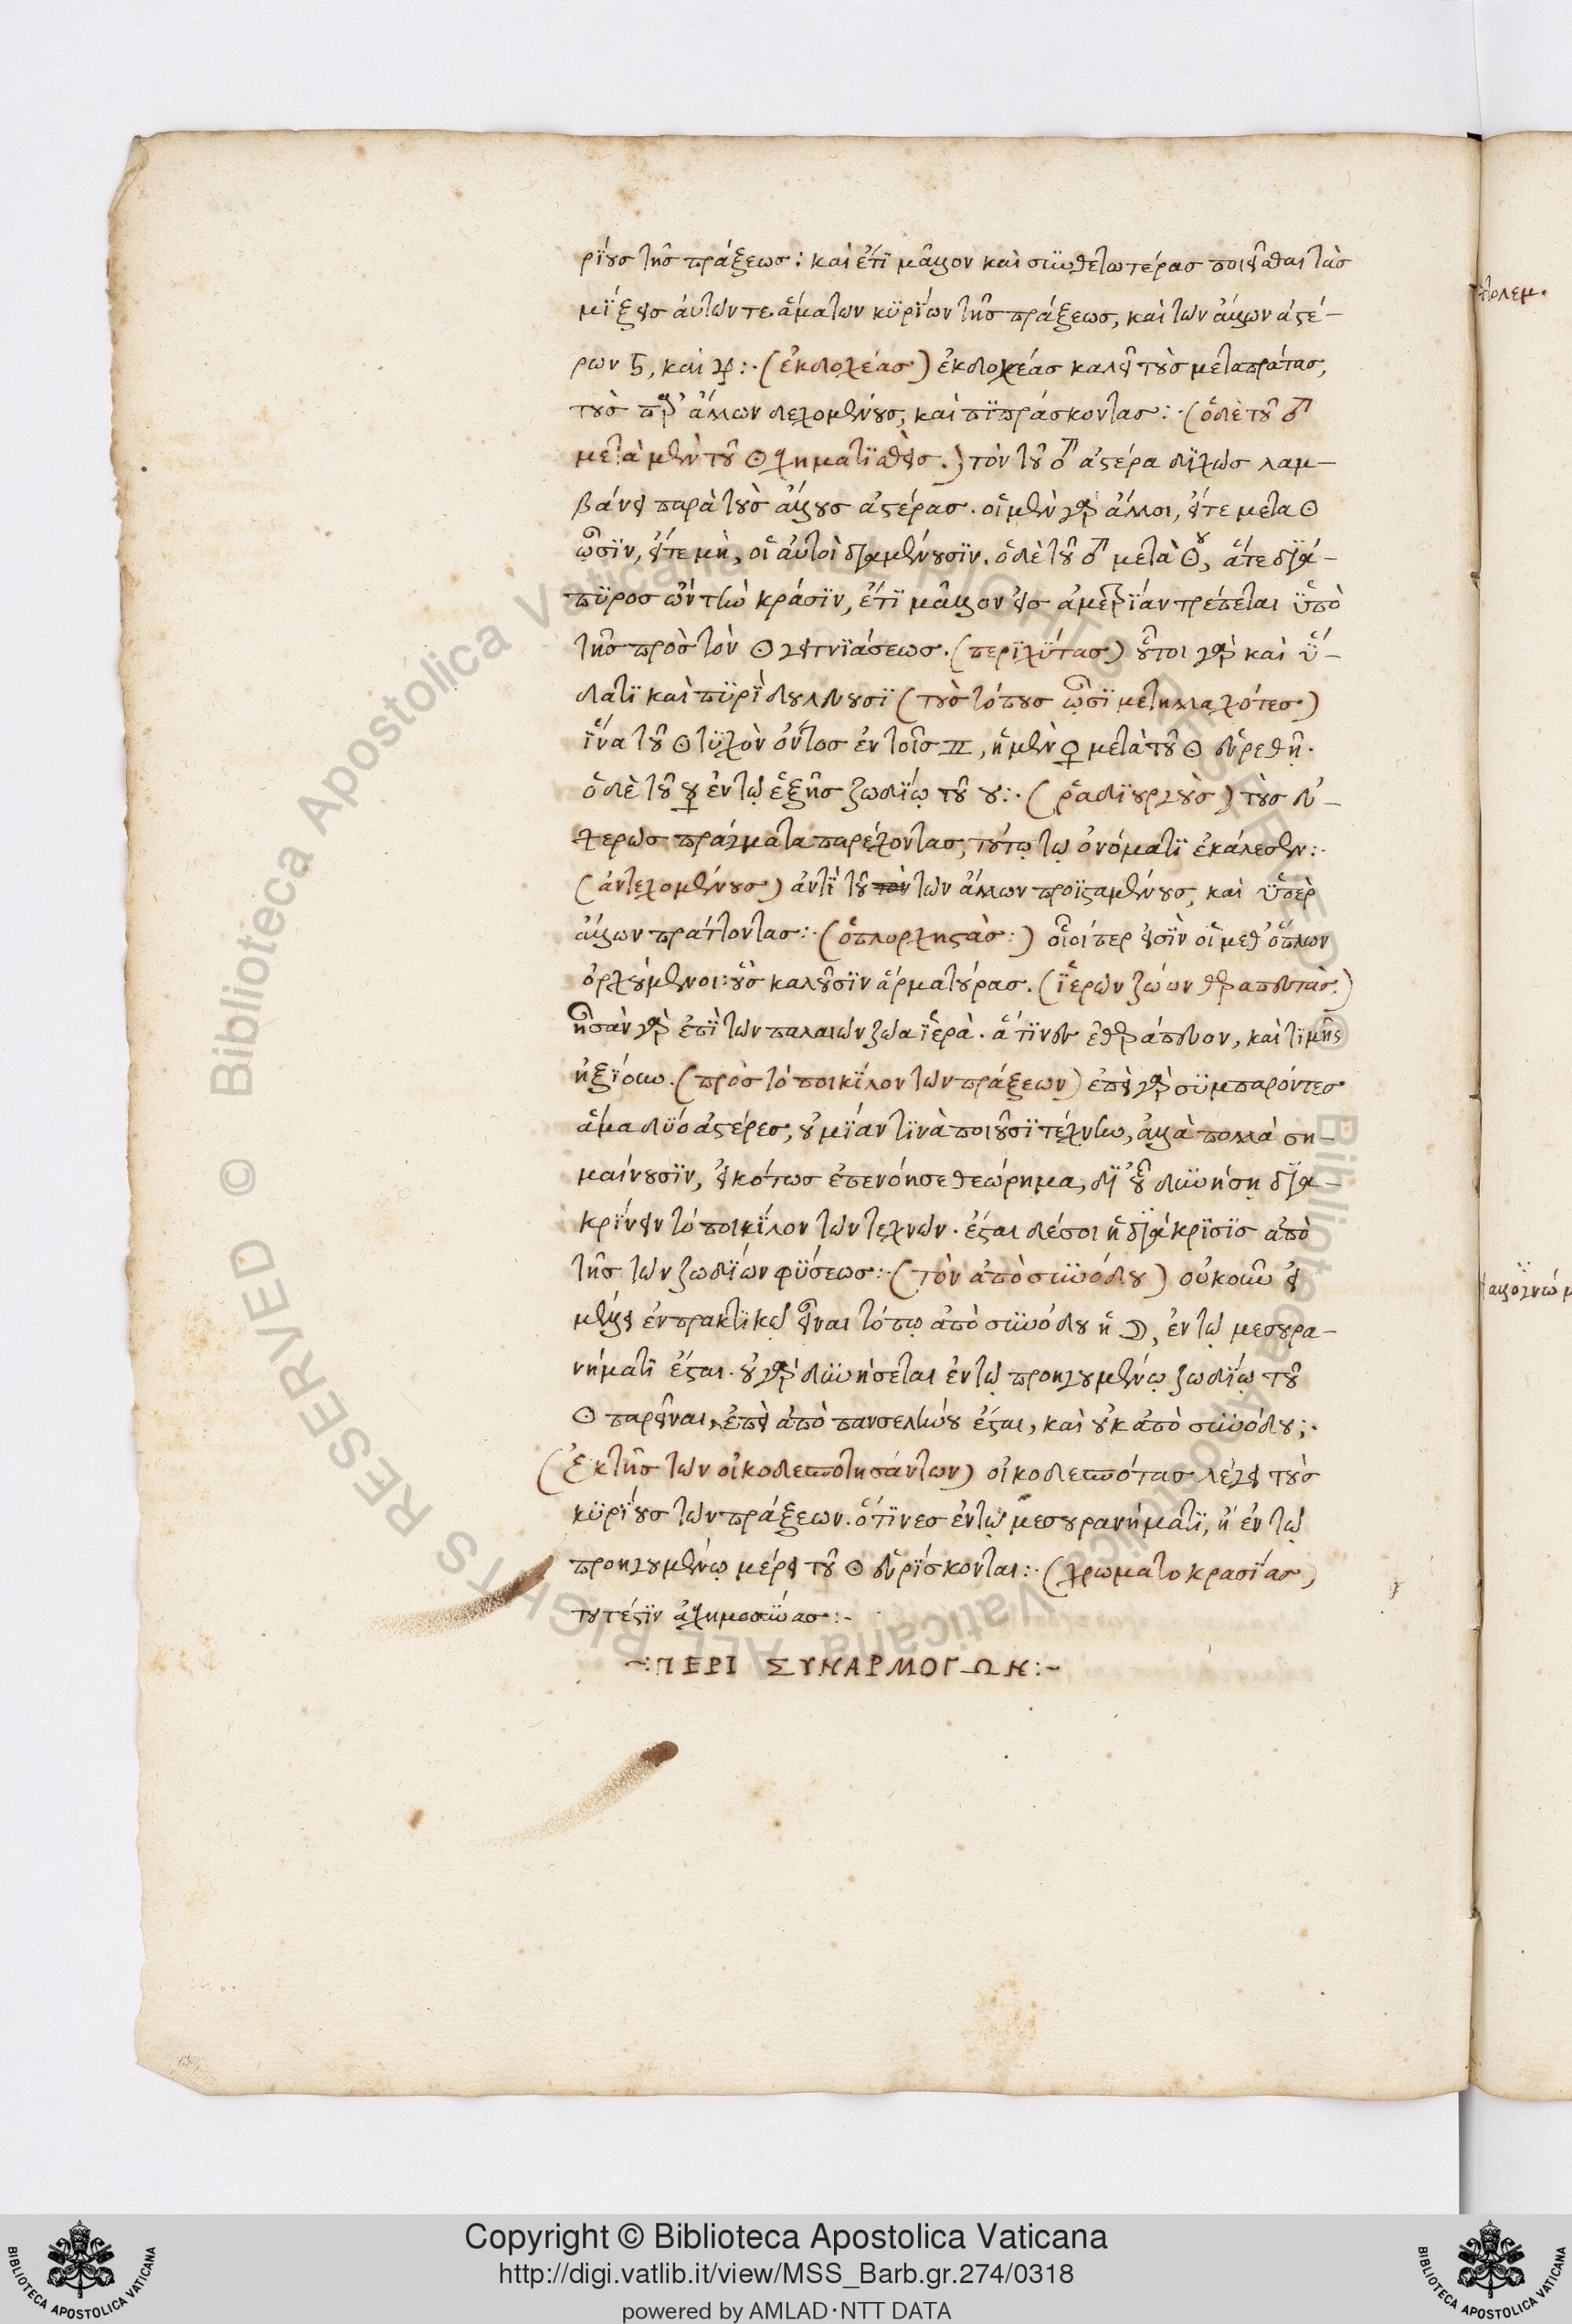 ρΐους τῆς πράξεως: καὶ ἔτϊ μᾶλλον καὶ συνθετωτέρας ποιεῖσθαι τὰς
μΐξεις ἀυτῶν τε ἅμα τῶν κϋρΐων τῆς πράξεως, καὶ τῶν ἄλλων ἀστέ-
ρων ♄, καὶ ♃:· (ἐκδοχέας) ἐκδοχέας καλεῖ τοὺς μεταπράτας,
τοὺς παρ' ἄλλων δεχομένους, καὶ πϊπράσκοντας:· (ὁ δὲ τοῦ ♂
μετὰ μὲν τοῦ ☉ σχηματϊσθεὶς.) τὸν τοῦ ♂ ἀστέρα δϊχῶς λαμ-
βάνει παρὰ τοὺς ἄλλους ἀστέρας. οἱ μὲν γὰρ ἄλλοι, εἴτε μετα ☉
ὦσϊν, εἴτε μὴ, οἱ ἀυτοὶ διαμένουσϊν. ὁ δὲ τοῦ ♂ μετὰ ☉ου, ἅτε δϊά-
πϋρος ὢν τὴν κράσϊν, ἔτϊ μᾶλλον εἰς ἀμετρΐαν τρέπεται ϋπὸ
τῆς πρὸς τὸν ☉ γειτνϊάσεως. (περϊχΰτας) οὗτοι γὰρ καὶ ὕ-
δατϊ καὶ πϋρῒ δουλεύουσϊ (τοὺς τόπους ὦσϊ μετηλλαχότες)
ἵνα τοῦ ☉ τϋχὸν ὄντος ἐν τοῖς ♊, ἡ μὲν ♀ μετὰ τοῦ ☉ εὑρεθῇ.
ὁ δὲ τοῦ ☿ ἐν τῷ ἑξῆς ζωδΐῳ τοῦ ♉:· (ῥαδϊουργοὺς) τοὺς εὐ-
χερῶς πράγματα παρέχοντας, τούτῳ τῳ ὀνόματϊ ἐκάλεσεν:·
(ἀντεχομένους) ἀντῒ τοῦ τῶν ἄλλων προϊσταμένους, καὶ ϋπὲρ
ἄλλων πράττοντας:· (ὁπλορχηστὰς:) οἷοίπερ εἰσῒν οἱ μεθ' ὅπλων
ὀρχούμενοι: οὓς καλοῦσϊν ἁρματούρας. (ἱερῶν ζώων θεραπευτὰς.)
ἦσαν γὰρ ἐπῒ τῶν παλαιῶν ζῶα ϊερὰ. ἅτϊν' ἐν ἐθεράπευον, καὶ τϊμῆς
ἠξΐουν. (πρὸς τὸ ποικΐλον τῶν πράξεων) ἐπεὶ γὰρ σϋμπαρόντες
ἅμα δΰο ἀστέρες, οὐ μΐαν τϊνὰ ποιοῦσϊ τέχνην, ἀλλὰ πολλά ση-
μαίνουσϊν, εἰκότως ἐπενόησε θεώρημα, δϊ' οὗ δυνήσῃ δϊα-
κρΐνειν τὸ ποικΐλον τῶν τεχνῶν. ἔσται δέ σοι ἡ δϊάκρϊσϊς ἀπὸ
τῆς τῶν ζωδΐων φΰσεως:· (τὸν ἀπὸ συνόδου) οὐκοῦν εἰ
μέλλει ἐν πρακτϊκῷ εἶναι τόπῳ ἀπὸ συνόδου ἡ ☽, ἐν τῷ μεσουρα-
νήματϊ ἔσται. οὐ γὰρ δυνήσεται ἐν τῷ προηγουμένῳ ζωδΐῳ τοῦ
☉ παρεῖναι, ἐπεὶ ἀπὸ πανσελήνου ἔσται, καὶ οὐκ ἀπὸ συνόδου;·
(ἐκ τῆς τῶν οἰκοδεσποτησάντων) οἰκοδεσπότας λέγει τοὺς
κϋρΐους τῶν πράξεων. οἵτϊνες ἐν τῷ μεσουρανήματϊ, ἢ ἐν τῷ
προηγουμένῳ μέρει τοῦ ☉ εὑρΐσκονται:· (χρωματοκρασΐας)
τουτέστϊν ἀσχημοσύνας:-
-:ΠΕΡΙ ΣΥΝΑΡΜΟΓΩΝ:-
Copyright © Biblioteca Apostolica Vaticana
http://digi.vatlib.it/view/MSS_Barb.gr.274/0318
powered by AMLAD·NTT DATA